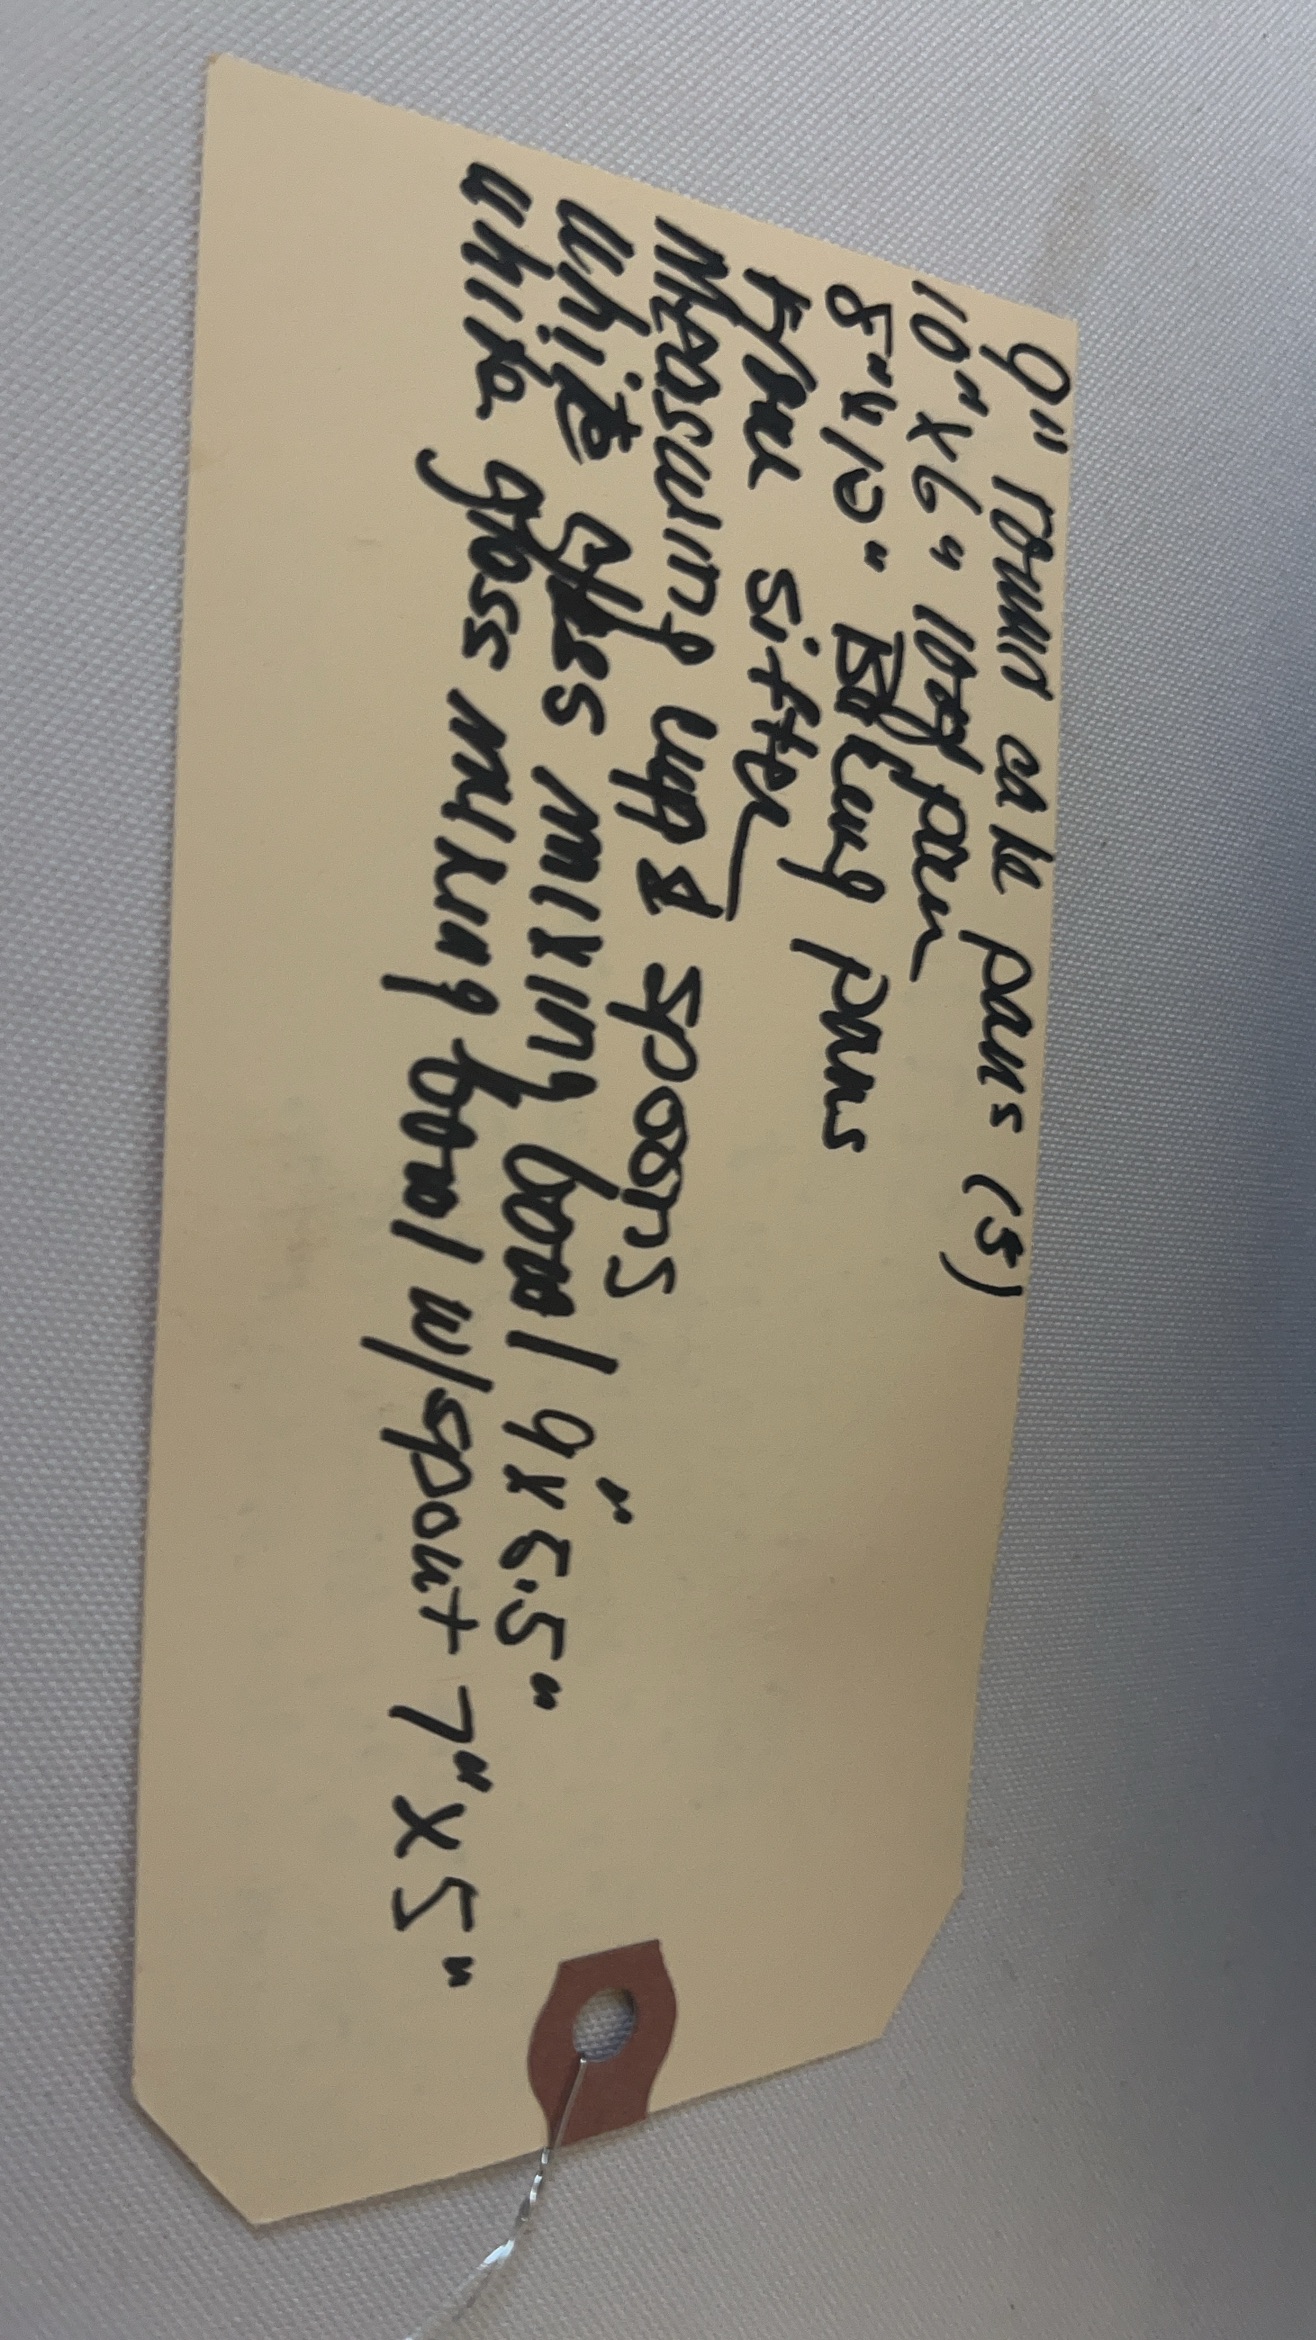 9" round cake pans (5)
10" x 6" loaf pan
8" x 10" Baking pans
sifter
Measuring cups spoons
White glass mixing bowl 9" x 5.5"
white glass mixing bowl w/spout 7" x 5"